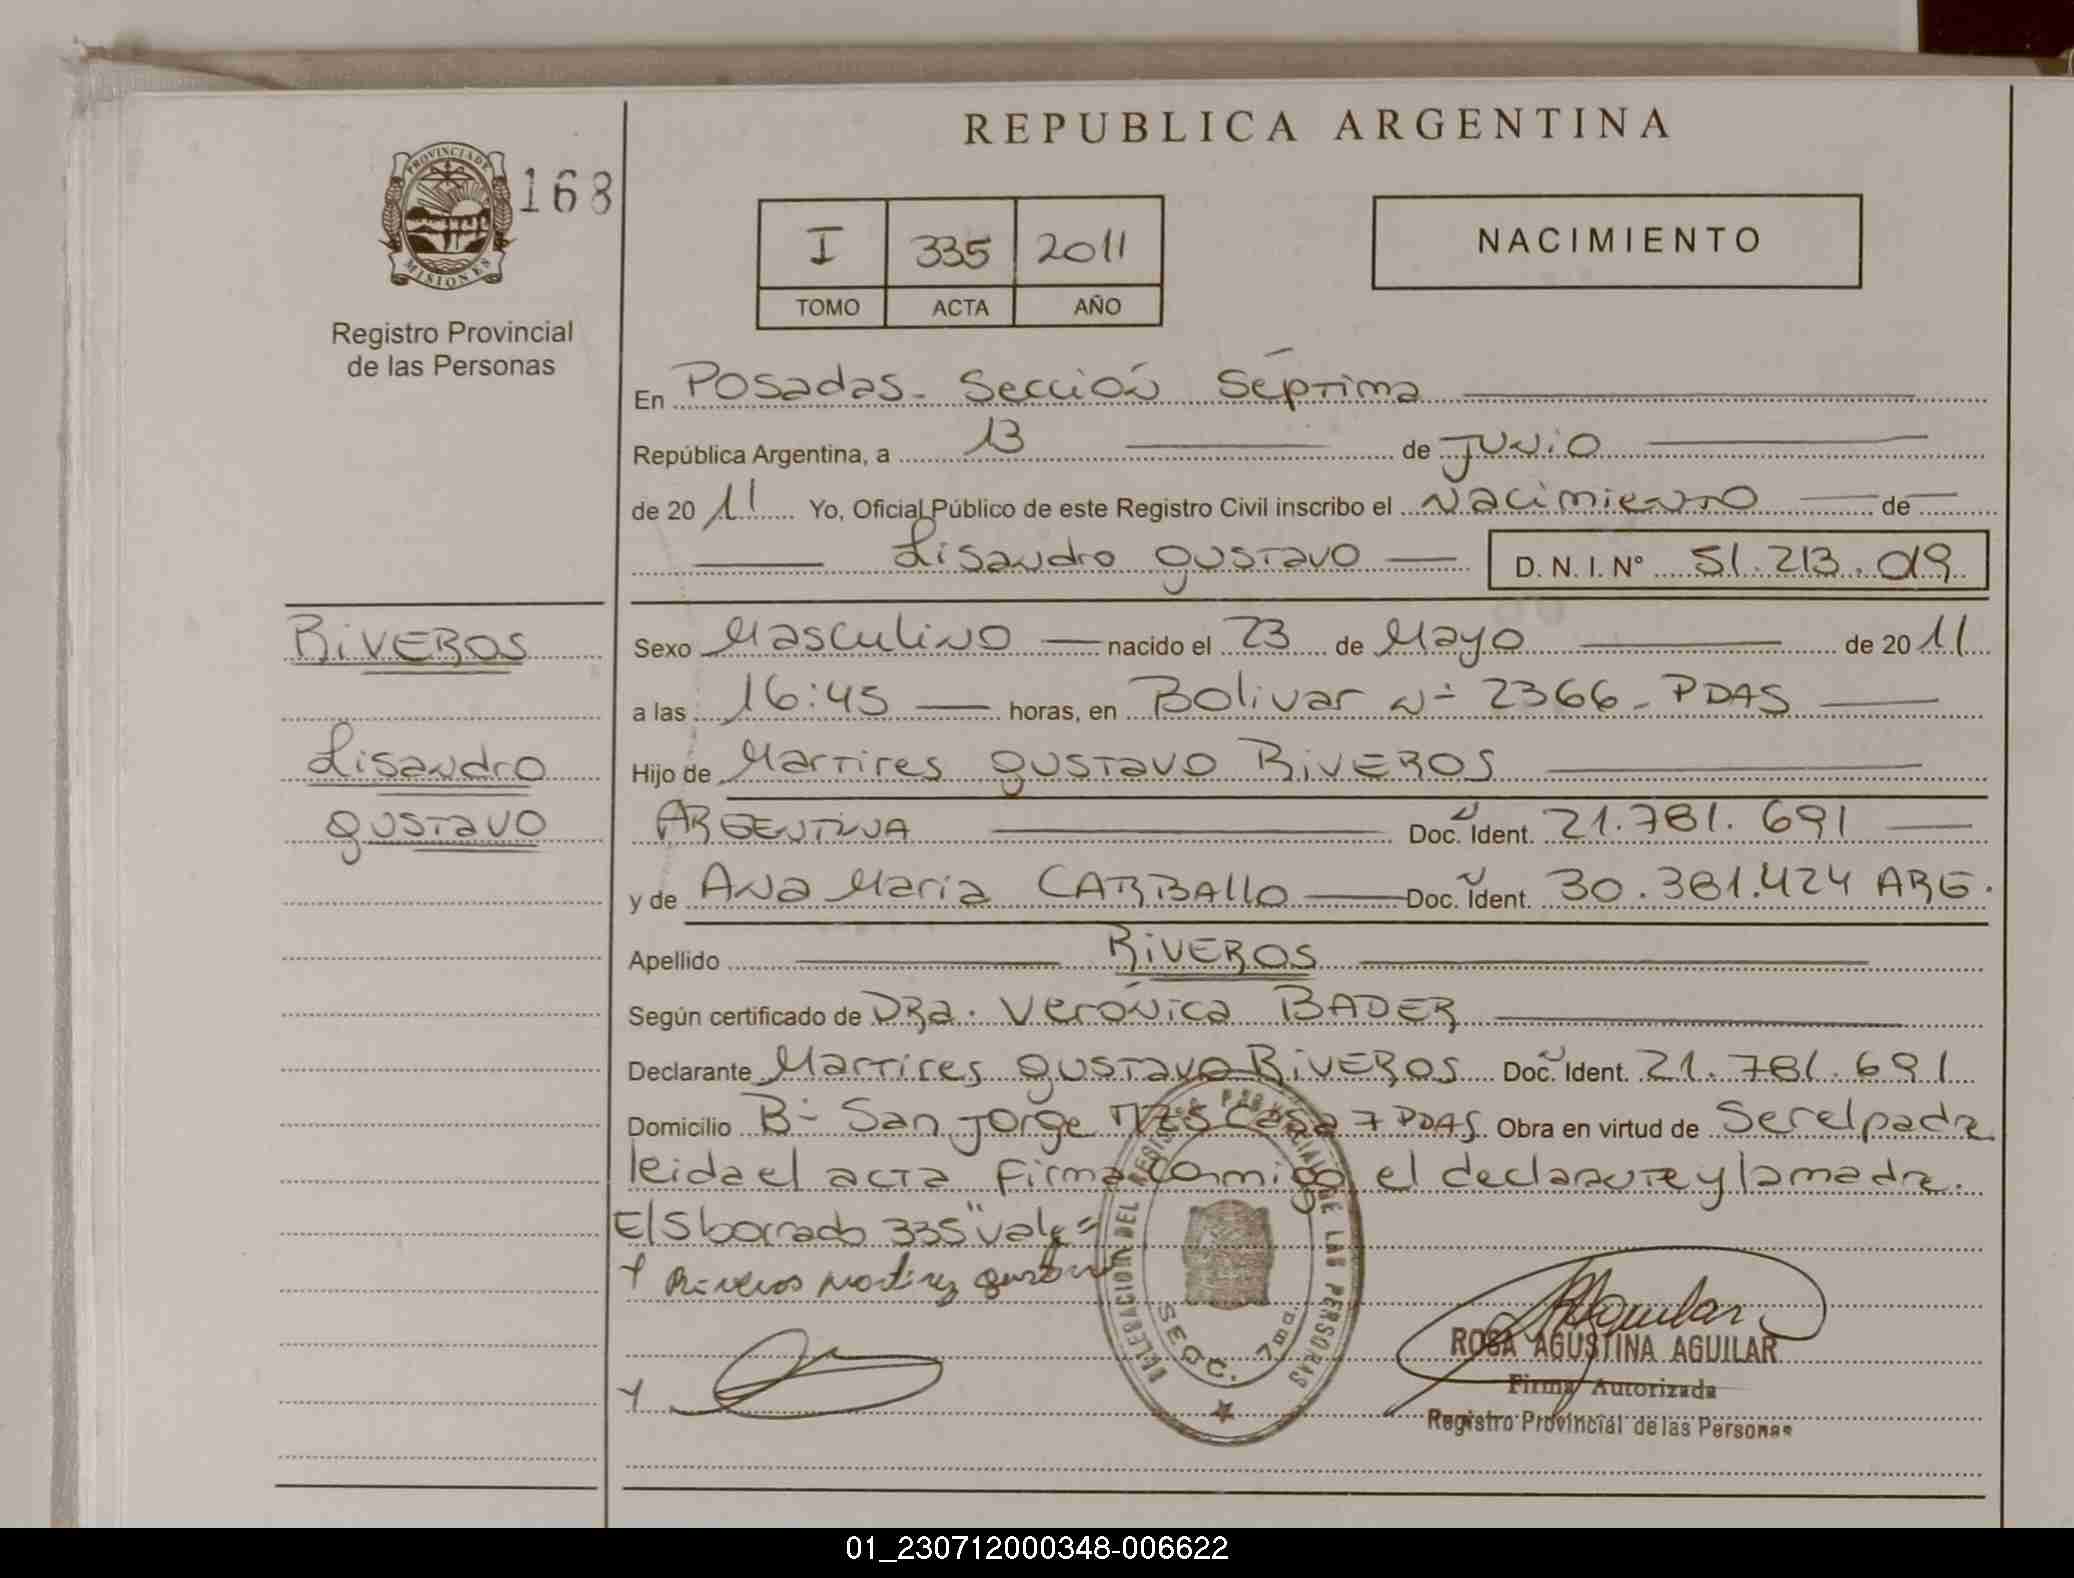 REPUBLICA ARGENTINA
PROVINCIA DE
MISIONES
168
Registro Provincial
de las Personas
I 335 2011
TOMO ACTA AÑO
NACIMIENTO
En Posadas - Sección Séptima
República Argentina, a 13 de Junio
de 2011 Yo, Oficial Público de este Registro Civil inscribo el Nacimiento de
Lisandro Gustavo D. N. I. N° 51.213.019
RIVEROS
Sexo Masculino nacido el 23 de Mayo de 2011
a las 16:45 horas, en Bolivar N° 2366 - PDAS
Lisandro
Hijo de Martires Gustavo RIVEROS
Gustavo
ARGENTINA Doc. Ident. 21.781.691
y de Ana Maria CARBALLO Doc. Ident. 30.381.424 ARG.
Apellido RIVEROS
Según certificado de DRa. Verónica BADER
Declarante Martires Gustavo RIVEROS Doc. Ident. 21.781.691
Domicilio B° San Jorge MZ5 Casa 7 PDAS Obra en virtud de Ser el padre
leida el acta firma conmigo el declarante y la madre.
El S borrado 335" vale =
Riveros Martirez Gustavo
DELEGACION DEL REGISTRO PROVINCIAL DE LAS PERSONAS
SECC. 7ma.
ROSA AGUSTINA AGUILAR
Firma Autorizada
Registro Provincial de las Personas
01_230712000348-006622